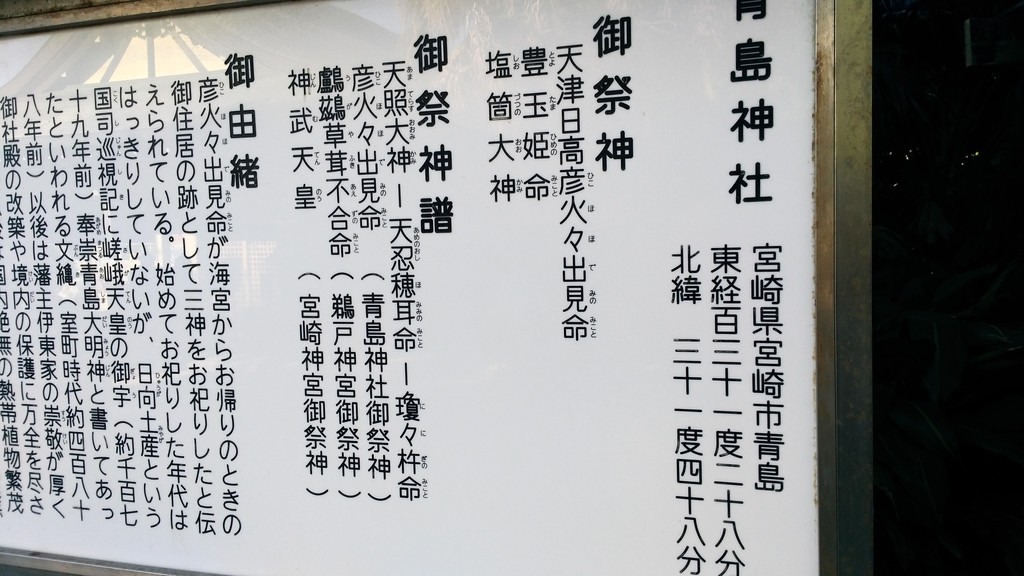 青島神社
宮崎県宮崎市青島
東経百三十一度二十八分
北緯 三十一度四十八分
御祭神
天津日高彦火々出見命
豊玉姫命
塩筒大神
御祭神譜
天照大神―天忍穂耳命―瓊々杵命
彦火々出見命(青島神社御祭神)
鸕鶿草葺不合命(鵜戸神宮御祭神)
神武天皇(宮崎神宮御祭神)
御由緒
彦火々出見命が海宮からお帰りのときの
御住居の跡として三神をお祀りしたと伝
えられている。始めてお祀りした年代は
はっきりしていないが、日向土産という
国司巡視記に嵯峨天皇の御宇(約千百七
十九年前)奉崇青島大明神と書いてあっ
たといわれる文亀(室町時代約四百八十
八年前)以後は藩主伊東家の崇敬が厚く
御社殿の改築や境内の保護に万全を尽さ
国内絶無の熱帯植物繁茂